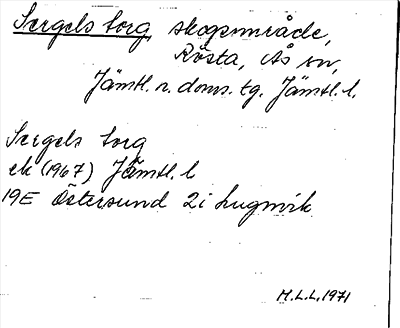 Sergels torg, skogsområde,
Rösta, Ås sn,
Jämtl. n. doms. tg. Jämtl. l.
Sergels torg
ek (1967) Jämtl. l
19E Östersund 2i Lugnvik
M.L.L. 1971